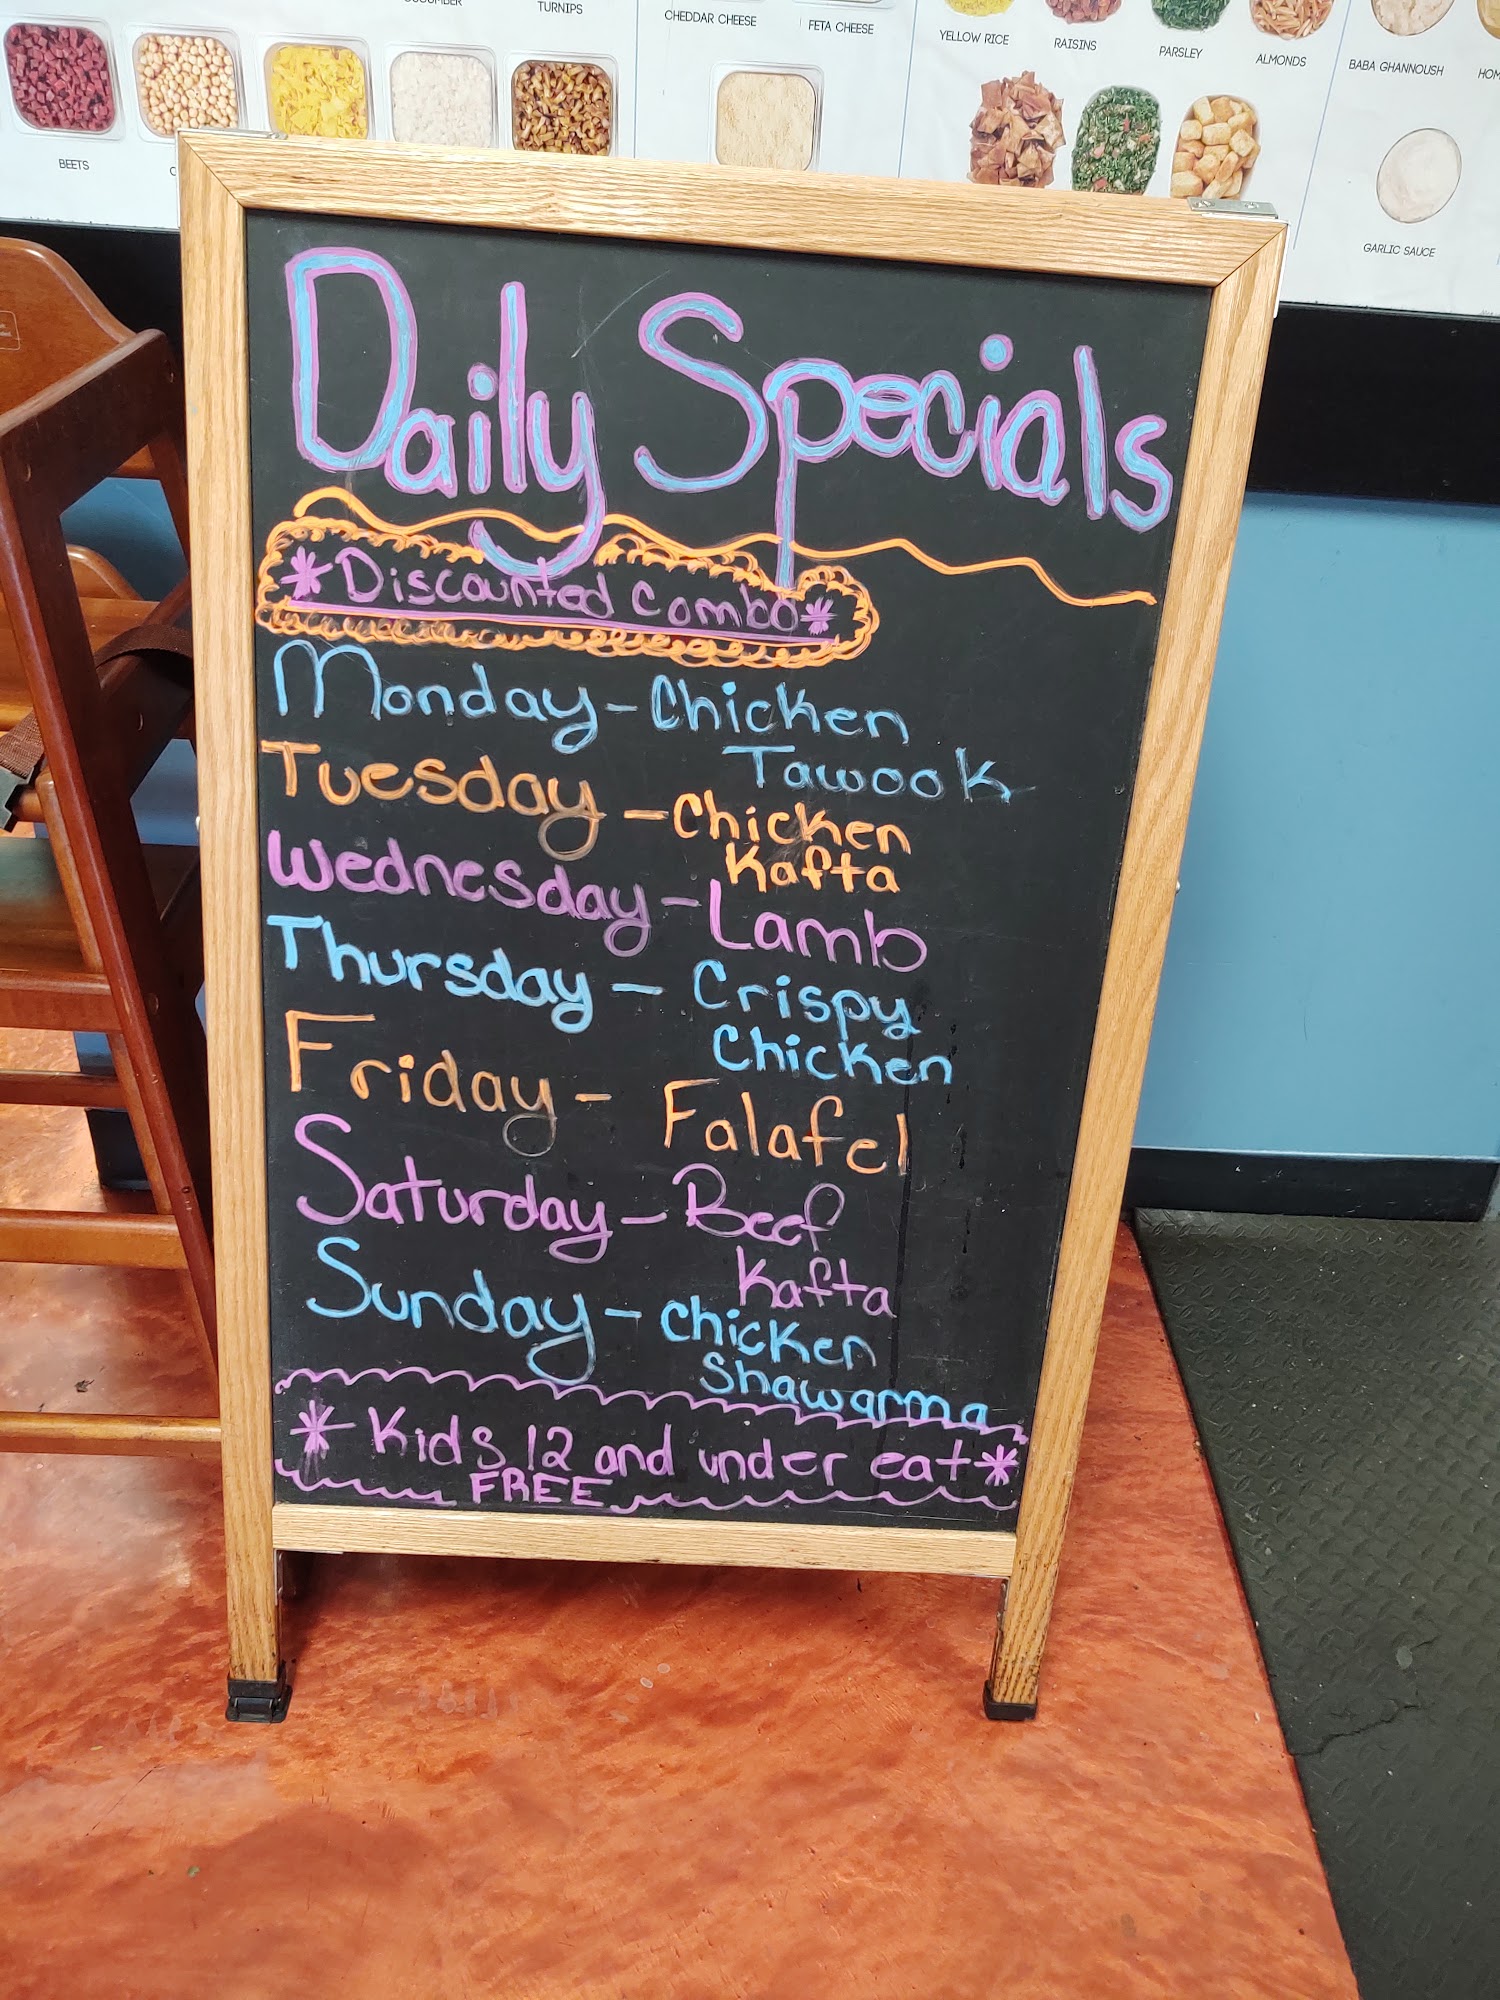 CUCUMBER
TURNIPS
CHEDDAR CHEESE
FETA CHEESE
YELLOW RICE
RAISINS
PARSLEY
ALMONDS
BABA GHANNOUSH
BEETS
GARLIC SAUCE
Daily Specials
*Discounted Combo*
Monday - Chicken
Tawook
Tuesday - Chicken
Kafta
Wednesday - Lamb
Thursday - Crispy
Chicken
Friday - Falafel
Saturday - Beef
Kafta
Sunday - Chicken
Shawarma
* Kids 12 and under eat *
FREE